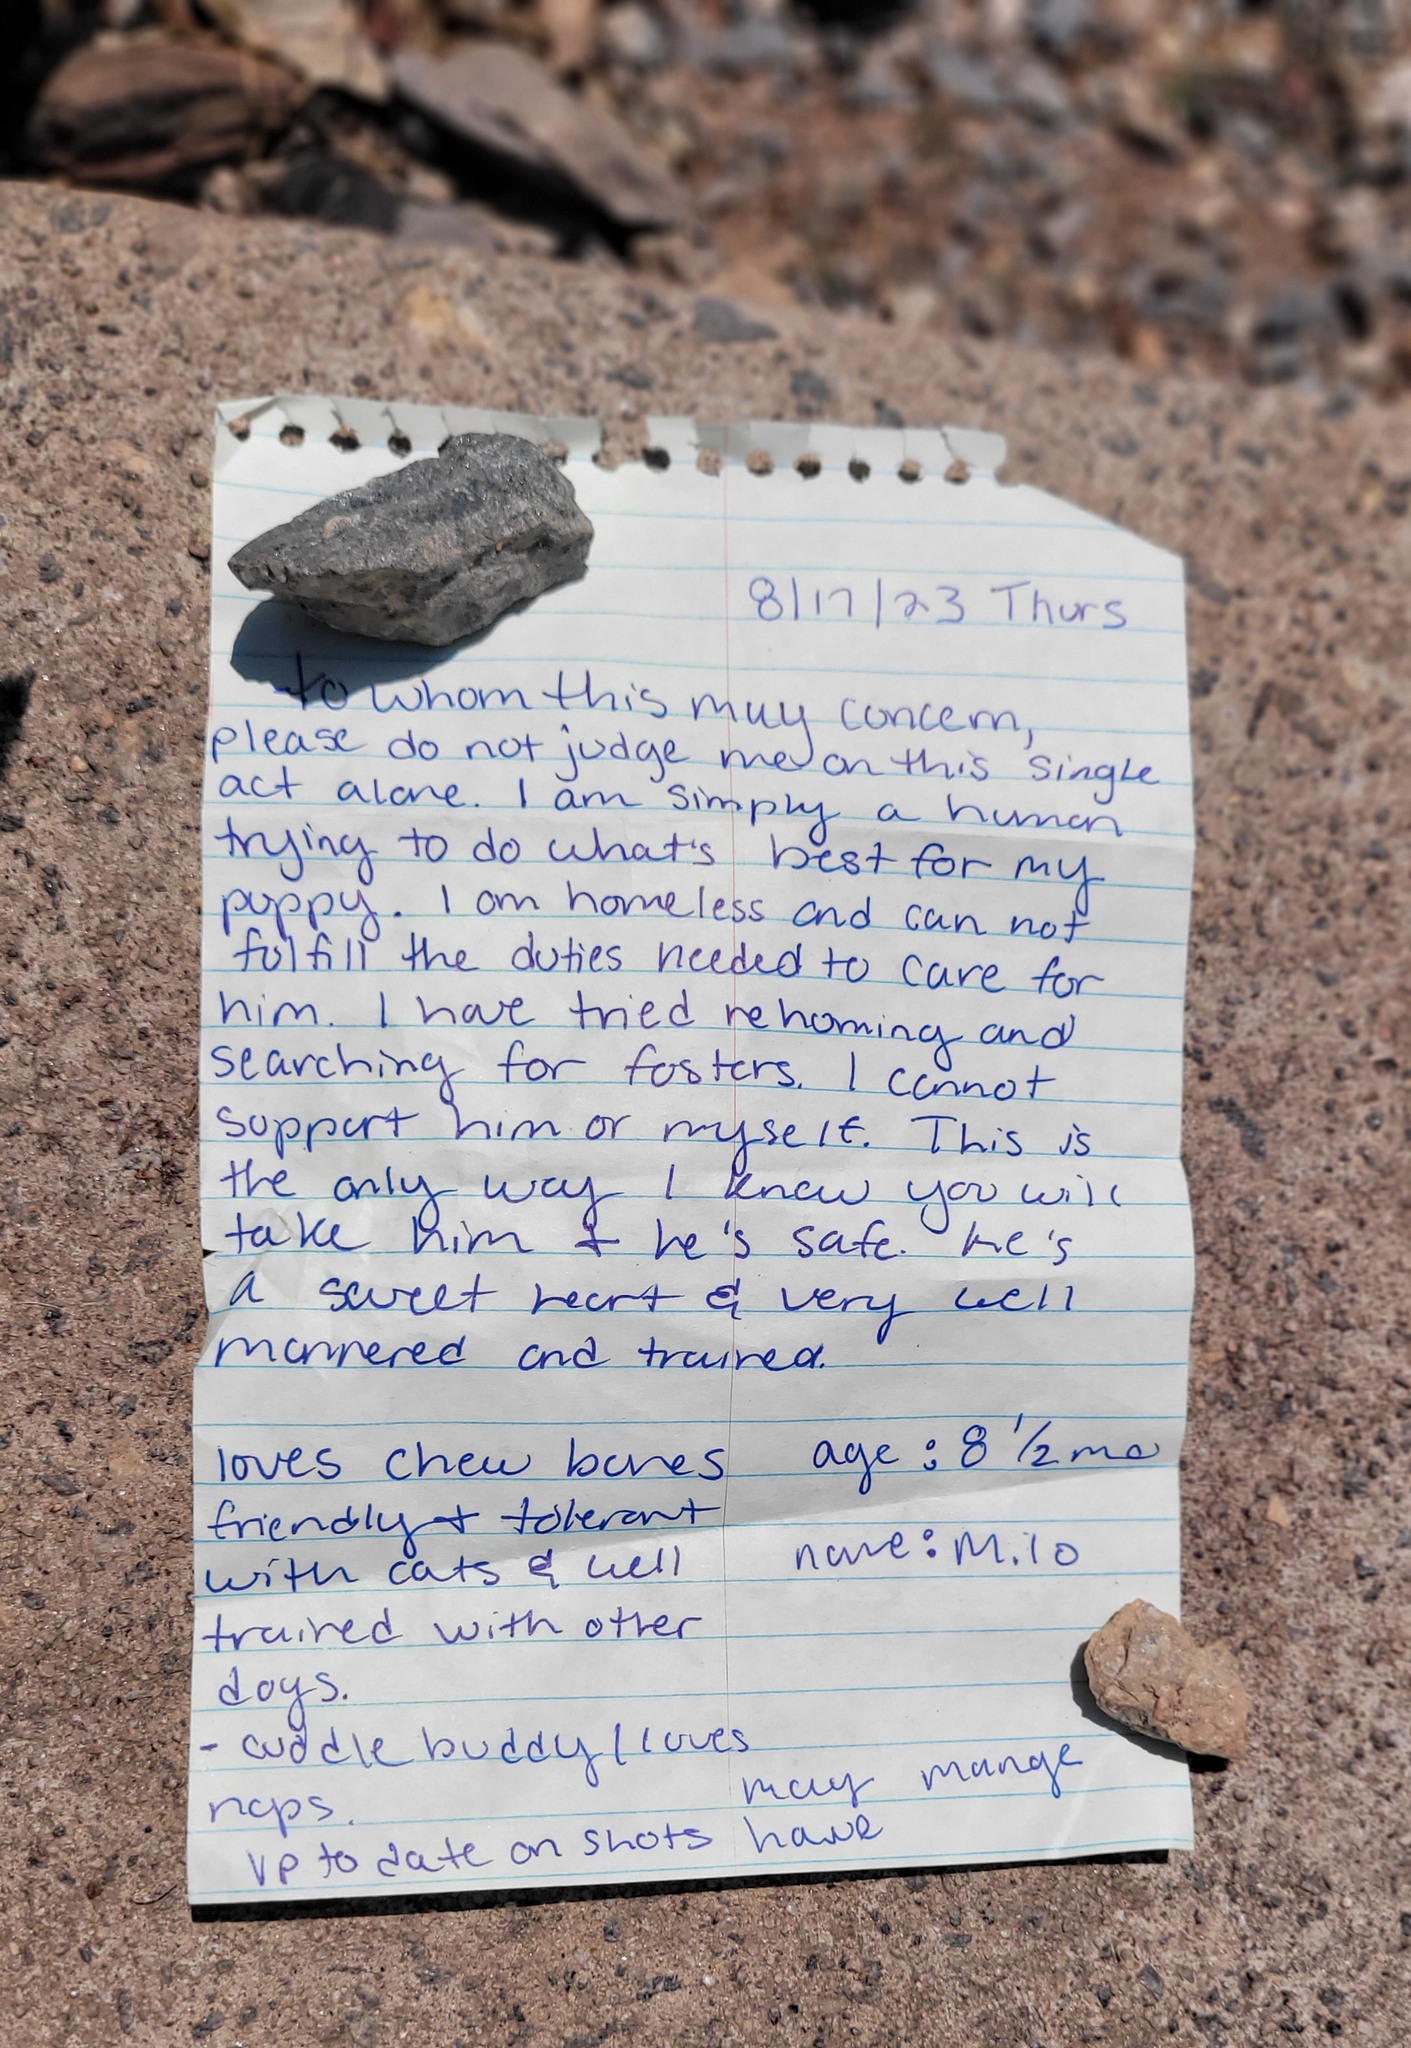 8/17/23 Thurs
to whom this may concern,
please do not judge me on this single
act alone. I am simply a human
trying to do what's best for my
puppy. I am homeless and can not
fulfill the duties needed to care for
him. I have tried rehoming and
searching for fosters. I cannot
support him or myself. This is
the only way I knew you will
take him & he's safe. He's
a sweet heart & very well
mannered and trained.
loves chew bones
friendly & tolerant
with cats & well
trained with other
dogs.
- cuddle buddy/loves
naps.
up to date on shots
age: 8 1/2 mo
name: Milo
may mange
have